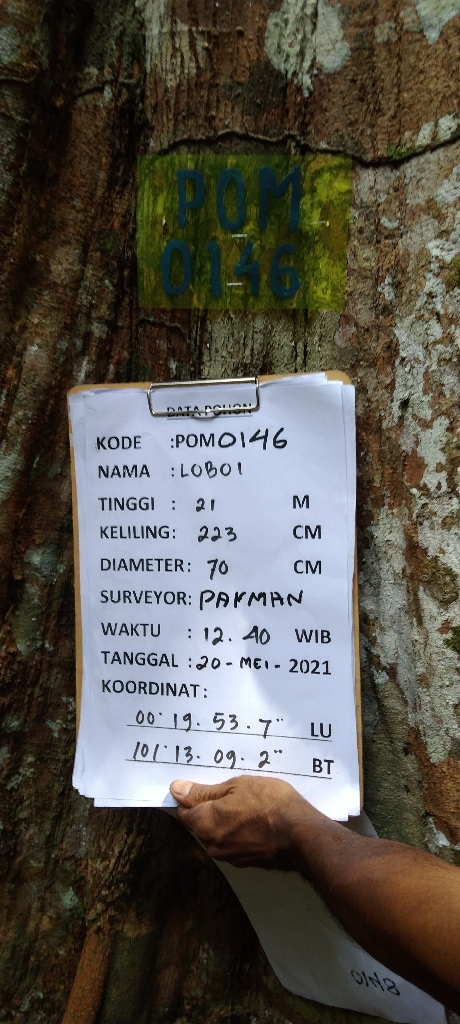 POM
0146
DATA POHON
KODE :POM0146
NAMA :LOBOI
TINGGI : 21 M
KELILING: 223 CM
DIAMETER: 70 CM
SURVEYOR: PAYMAN
WAKTU : 12.40 WIB
TANGGAL :20-MEI-2021
KOORDINAT:
00° 19. 53. 7" LU
101° 13. 09. 2" BT
0148